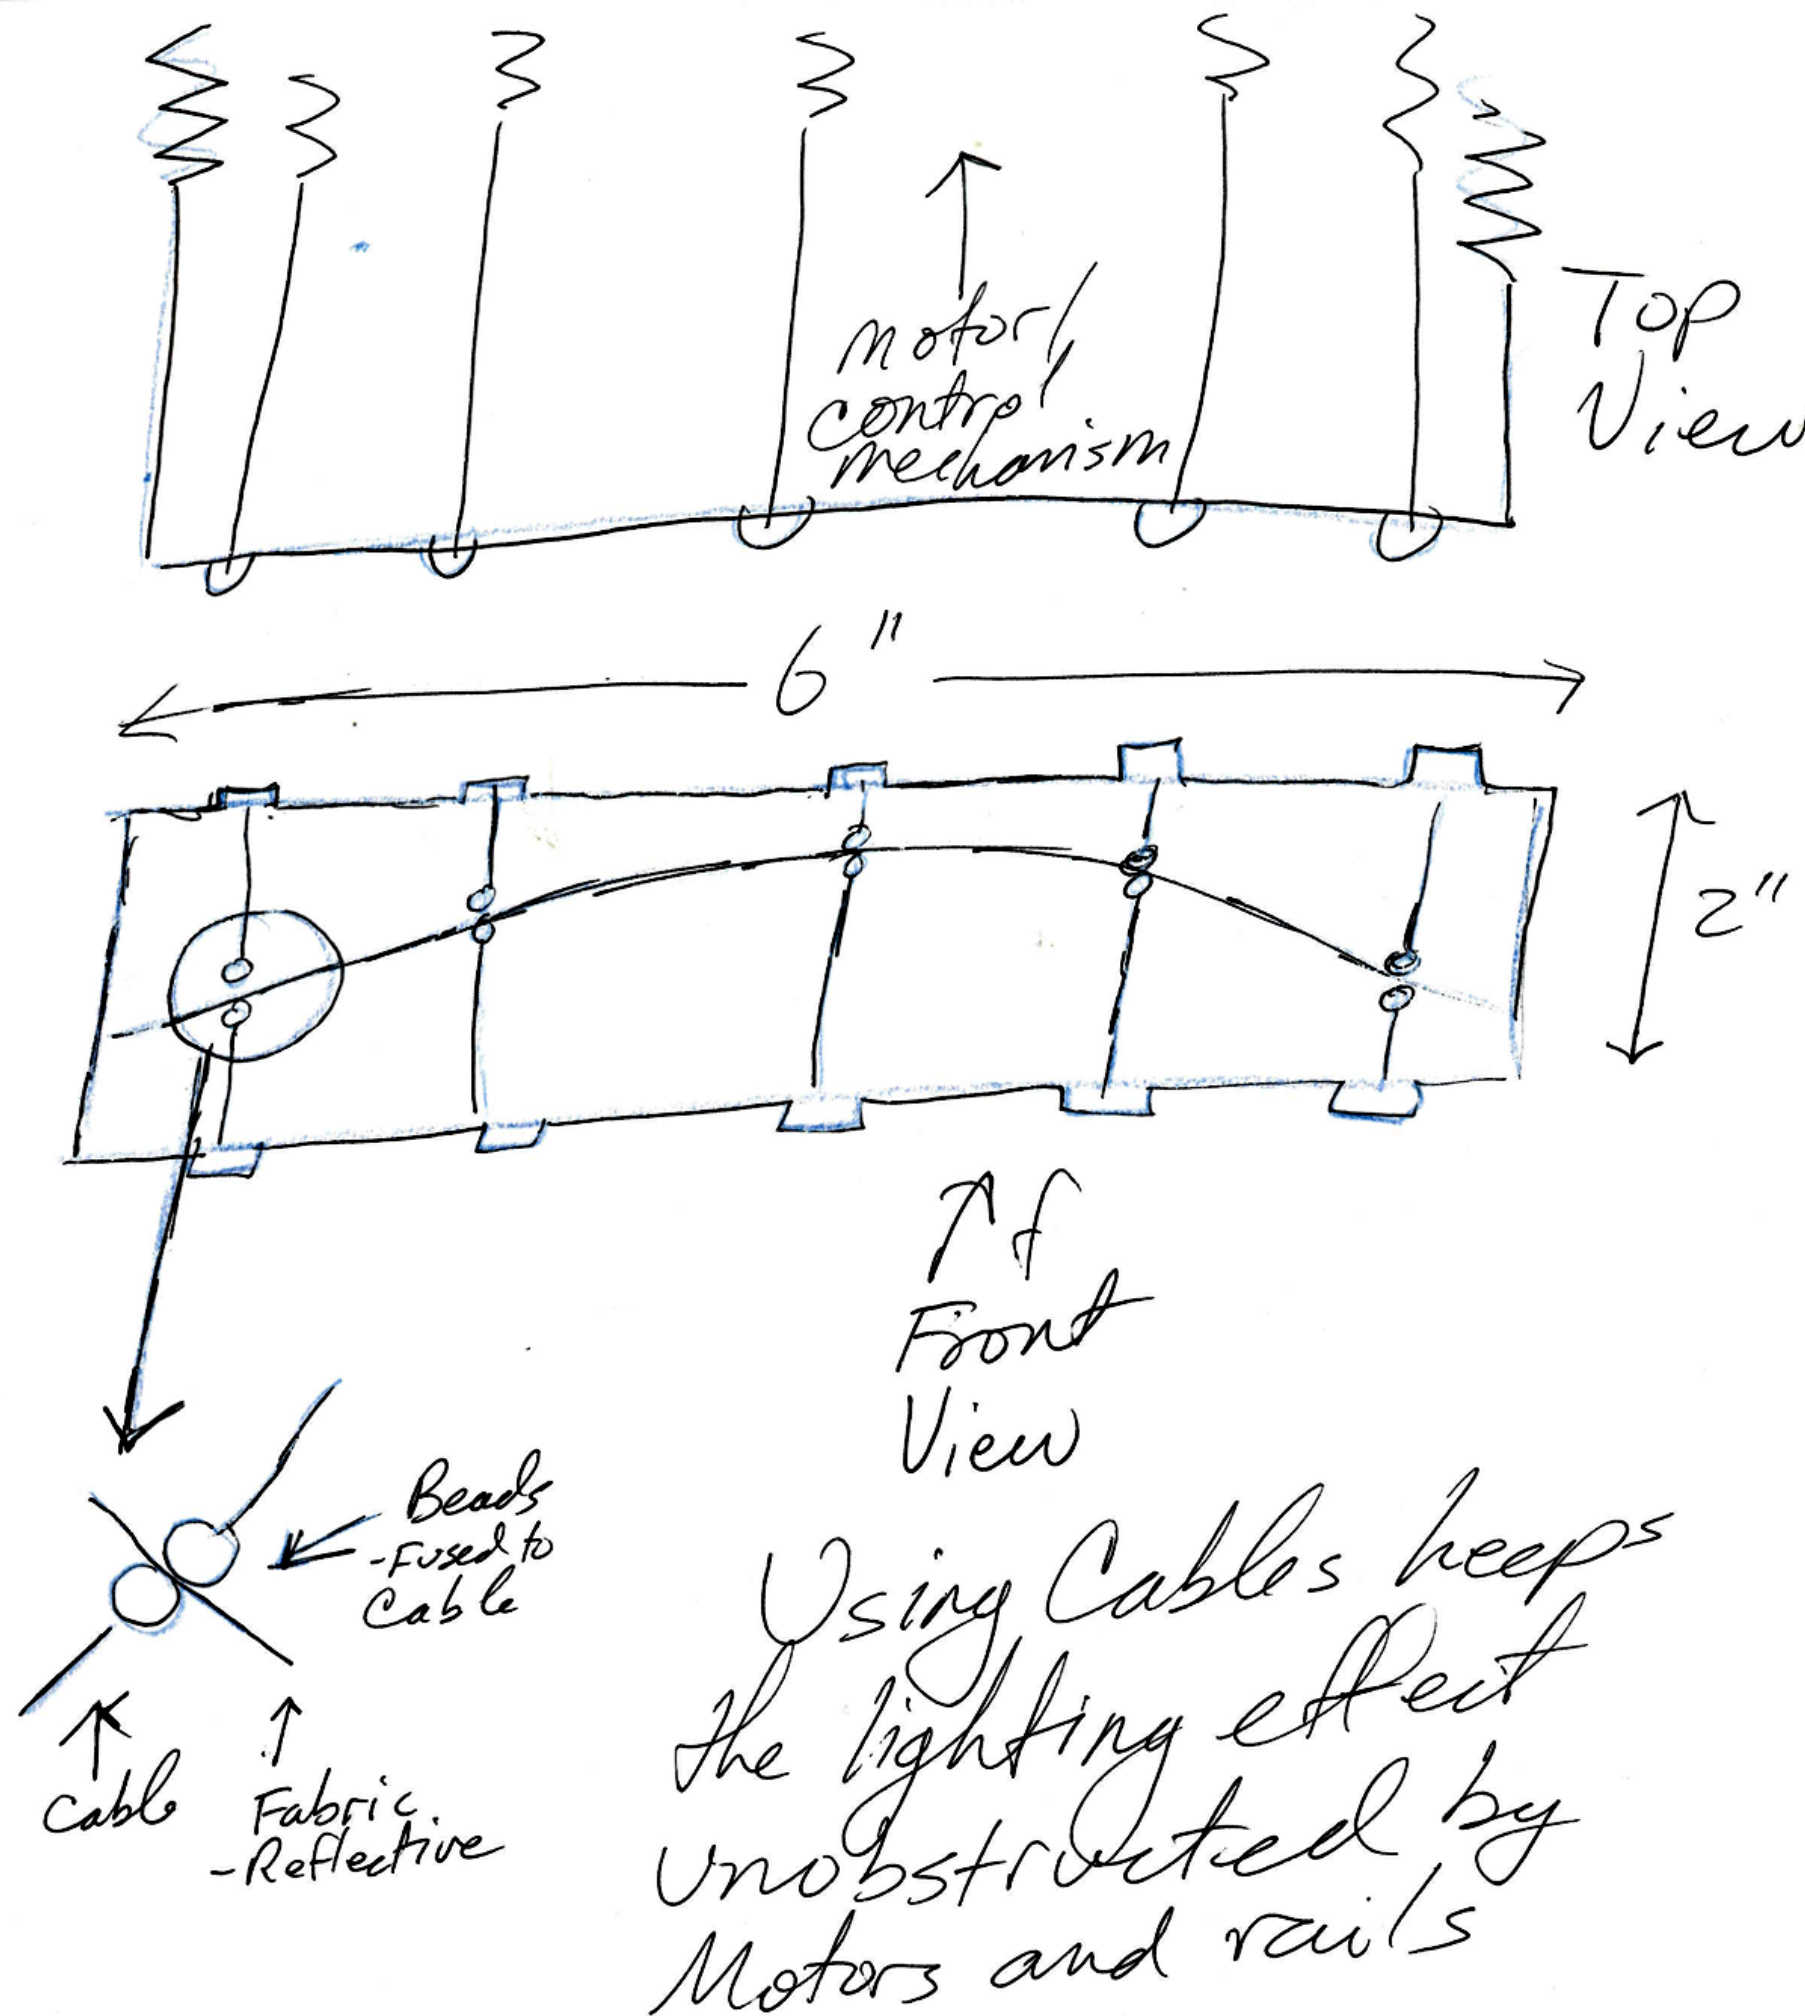 Motor/
control
mechanism
Top
View
6"
2"
Front
View
Beads
-Fused to
Cable
Cable
Fabric.
-Reflective
Using Cables keeps
the lighting effect
unobstructed by
Motors and rails